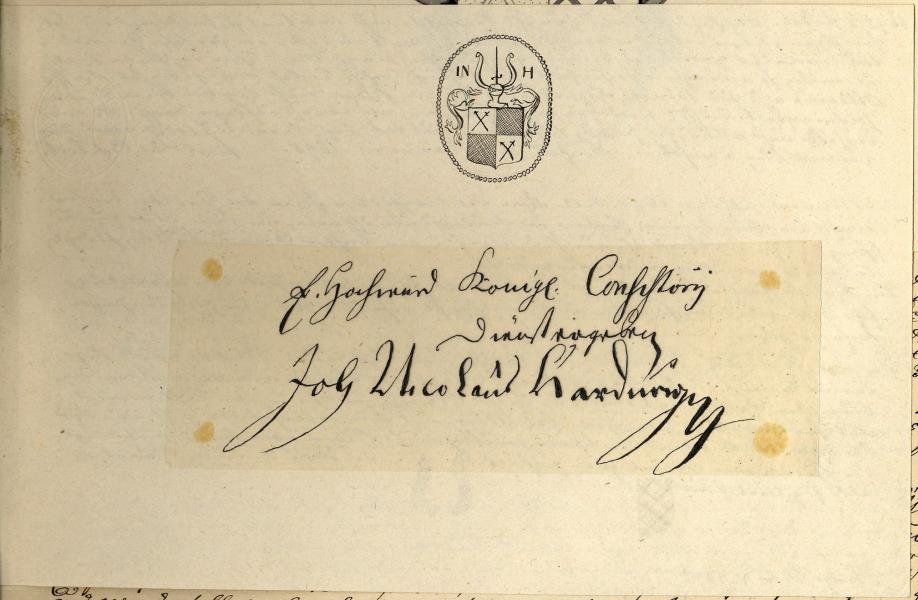 IN H
E. Hochwürd Königl. Consistorij
Dienstergeben
Joh Nicolaus